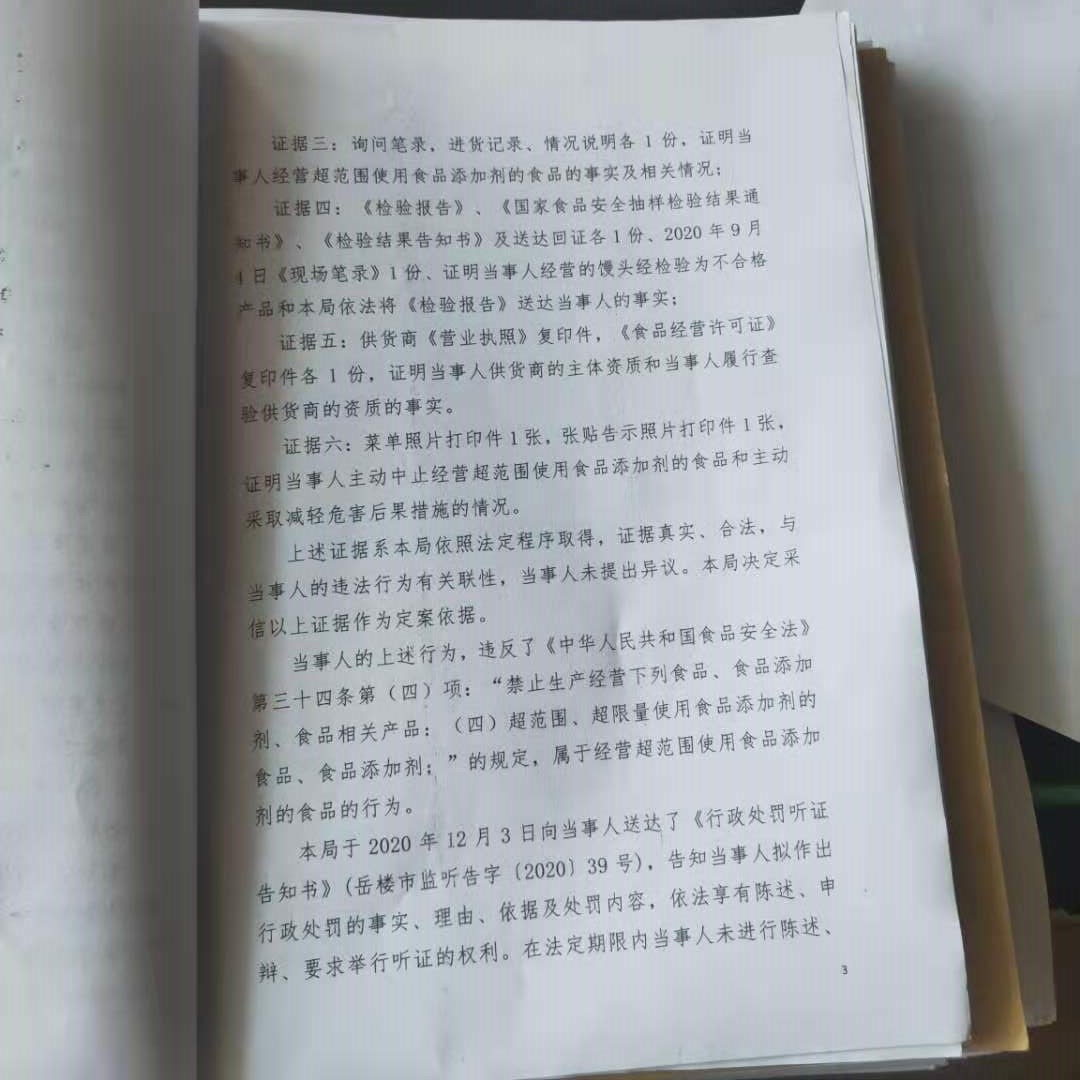 证据三：询问笔录，进货记录、情况说明各 1 份，证明当
事人经营超范围使用食品添加剂的食品的事实及相关情况；
证据四：《检验报告》、《国家食品安全抽样检验结果通
知书》、《检验结果告知书》及送达回证各1份、2020 年 9 月
4 日《现场笔录》1 份、证明当事人经营的馒头经检验为不合格
产品和本局依法将《检验报告》送达当事人的事实；
证据五：供货商《营业执照》复印件，《食品经营许可证》
复印件各 1 份，证明当事人供货商的主体资质和当事人履行查
验供货商的资质的事实。
证据六：菜单照片打印件 1 张，张贴告示照片打印件 1 张，
证明当事人主动中止经营超范围使用食品添加剂的食品和主动
采取减轻危害后果措施的情况。
上述证据系本局依照法定程序取得，证据真实、合法，与
当事人的违法行为有关联性，当事人未提出异议。本局决定采
信以上证据作为定案依据。
当事人的上述行为，违反了《中华人民共和国食品安全法》
第三十四条第（四）项：“禁止生产经营下列食品、食品添加
剂、食品相关产品：（四）超范围、超限量使用食品添加剂的
食品、食品添加剂；”的规定，属于经营超范围使用食品添加
剂的食品的行为。
本局于 2020 年 12 月 3 日向当事人送达了《行政处罚听证
告知书》(岳楼市监听告字〔2020〕39 号)，告知当事人拟作出
行政处罚的事实、理由、依据及处罚内容，依法享有陈述、申
辩、要求举行听证的权利。在法定期限内当事人未进行陈述、
3